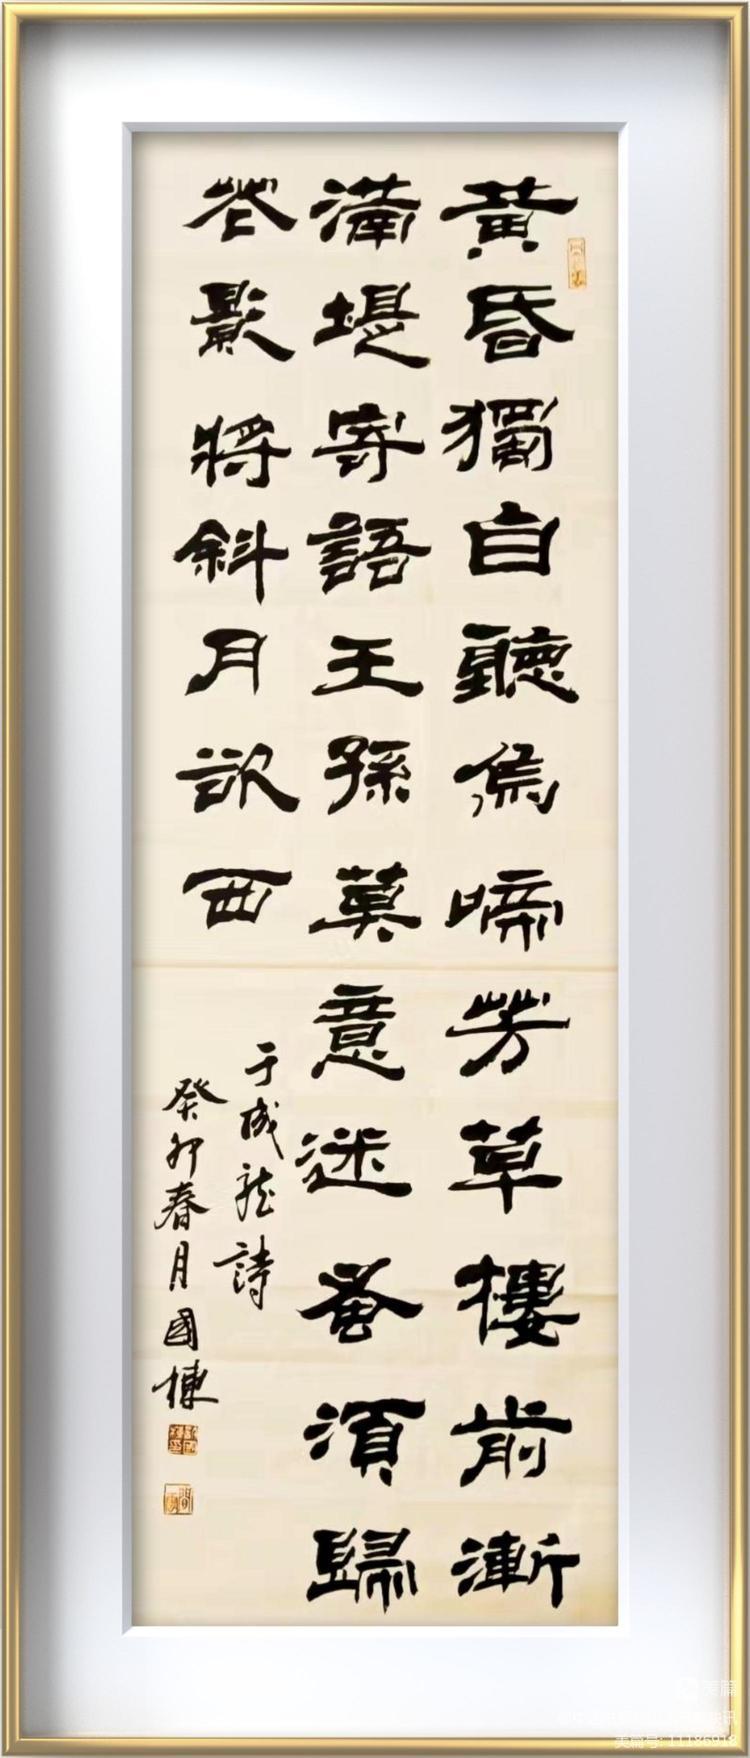 黃昏獨白聽烏啼芳草樓前漸
滿堤寄語王孫莫意迷蚤須歸
花影將斜月欲西
于成龍詩
癸卯春月國棟
美篇